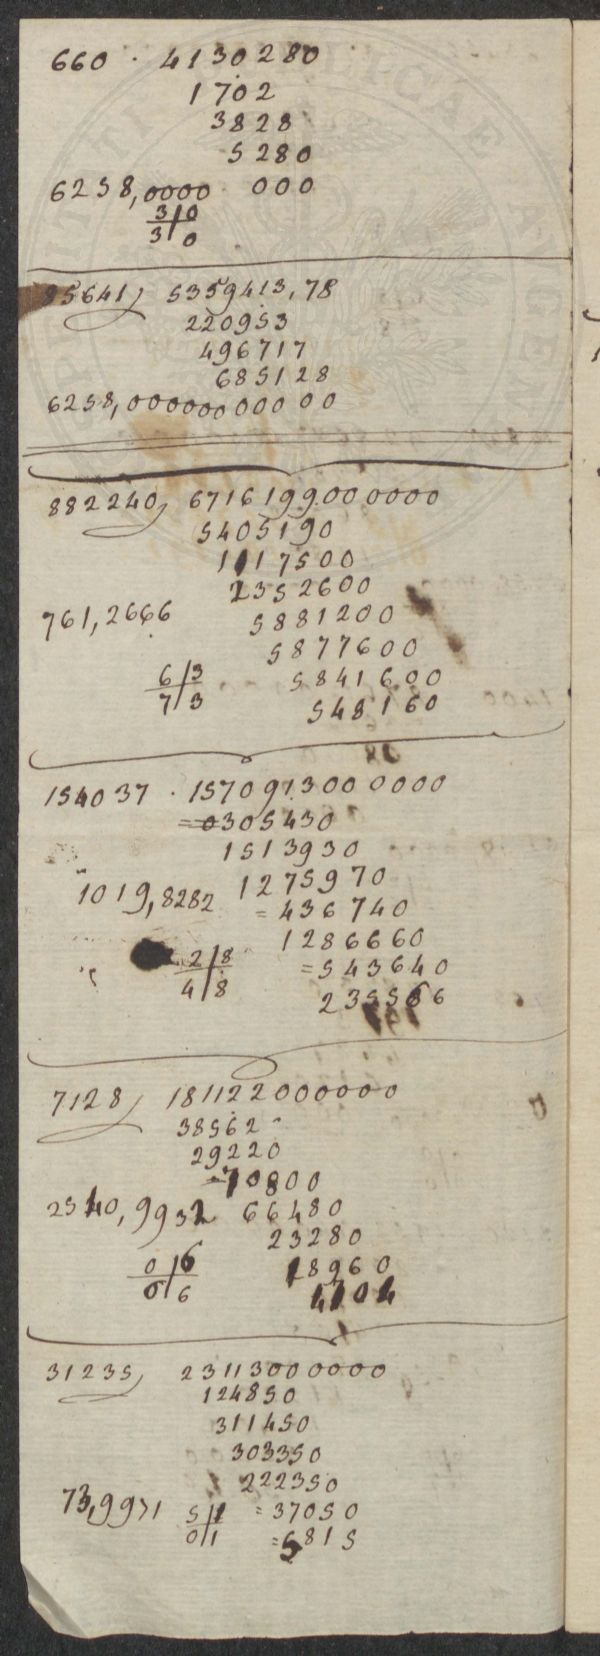 660 . 4130280
1702
3828
5280
6258,0000 000
3|0
3|0
85641) 5359413,78
220953
496717
685128
6258,00000000000
882240) 6716199000000
5405190
1117500
2352600
5881200
761,2666
5877600
6|3 5841600
7|3 548160
154037 . 157091300 0000
=0305430
1513930
1275970
1019,8282
=436740
1286660
2|8 =543640
4|8 235566
7128) 181122000000
38562
29220
10800
2540,9932 66480
23280
0|6 18960
0|6 4104
31235) 23113000000
124850
311450
303350
222350
73,9971 5|1 =37050
0|1 =5815